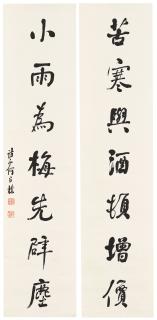 苦寒與酒頓增價
小雨為梅先辟塵